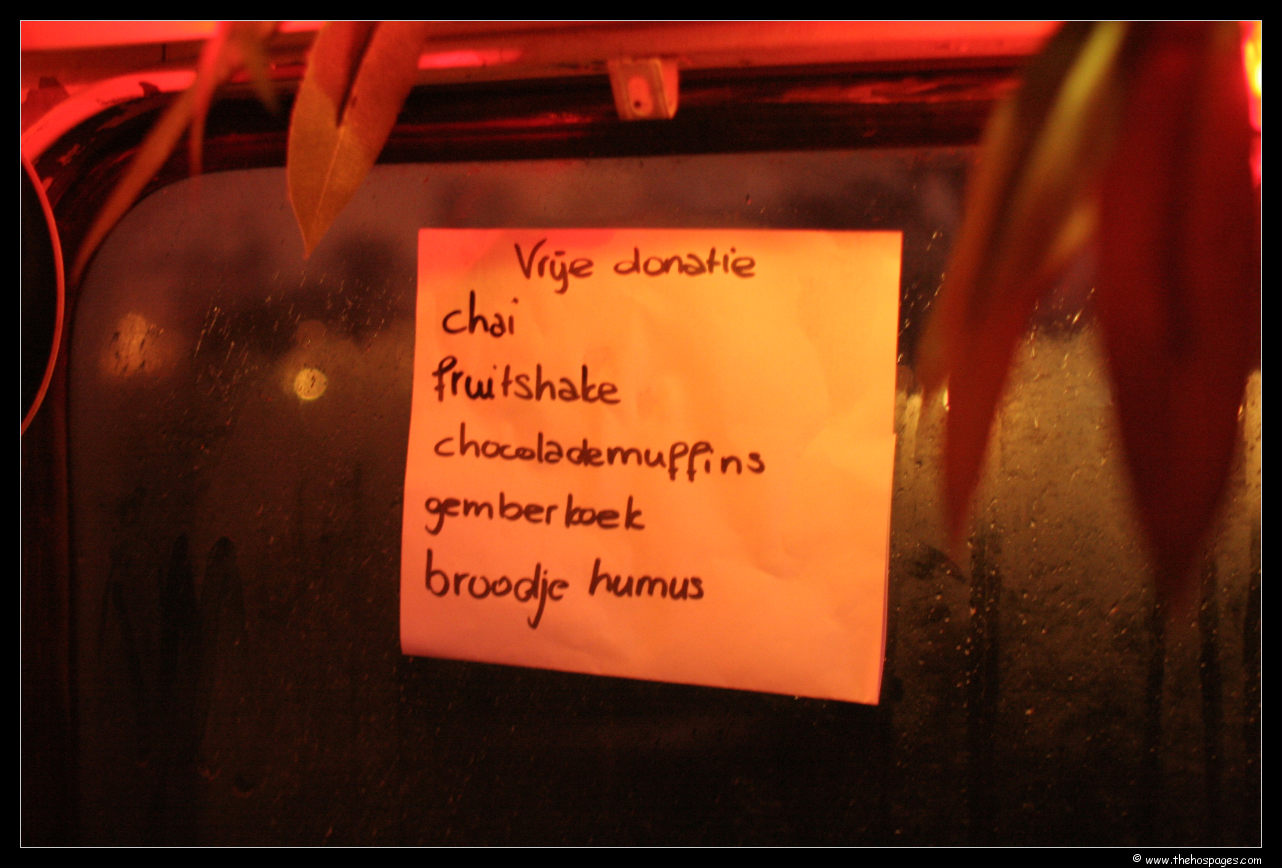 Vrije donatie
chai
fruitshake
chocolademuffins
gemberkoek
broodje humus
© www.thehospages.com